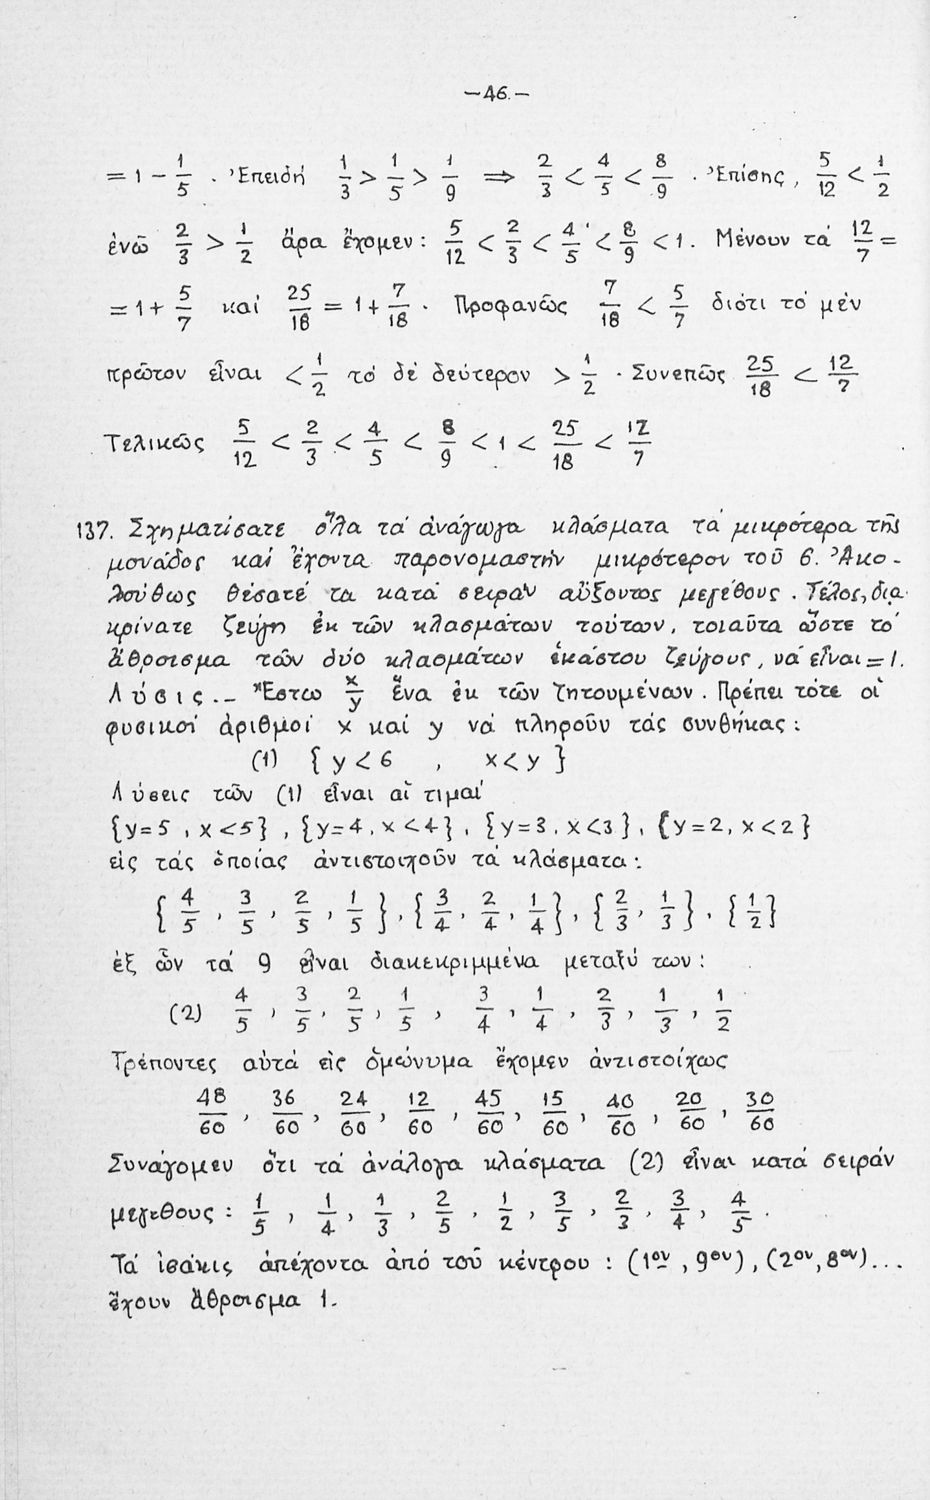 —46.—
= 1 − 1/5 . Ἐπειδή 1/3 > 1/5 > 1/9 ⇒ 2/3 < 4/5 < 8/9 . Ἐπίσης, 5/12 < 1/2
ἐνῶ 2/3 > 1/2 ἄρα ἔχομεν: 5/12 < 2/3 < 4/5 < 8/9 < 1. Μένουν τά 12/7 =
= 1+ 5/7 καί 25/18 = 1+ 7/18 . Προφανῶς 7/18 < 5/7 διότι τό μέν
πρῶτον εἶναι < 1/2 τό δέ δεύτερον > 1/2 . Συνεπῶς 25/18 < 12/7
Τελικῶς 5/12 < 2/3 < 4/5 < 8/9 < 1 < 25/18 < 12/7
137. Σχηματίσατε ὅλα τά ἀνάγωγα κλάσματα τά μικρότερα τῆς
μονάδος καί ἔχοντα παρονομαστήν μικρότερον τοῦ 6. Ἀκο-
λούθως θέσατέ τα κατά σειράν αὔξοντος μεγέθους. Τέλος, δια
κρίνατε ζεύγη ἐκ τῶν κλασμάτων τούτων, τοιαῦτα ὥστε τό
ἄθροισμα τῶν δύο κλασμάτων ἑκάστου ζεύγους, νά εἶναι = 1.
Λύσις.— Ἔστω x/y ἕνα ἐκ τῶν ζητουμένων. Πρέπει τότε οἱ
φυσικοί ἀριθμοί x καί y νά πληροῦν τάς συνθήκας:
(1) {y < 6 , x < y}
Λύσεις τῶν (1) εἶναι αἱ τιμαί
{y=5 , x<5} , {y=4, x<4}, {y=3, x<3}, {y=2, x<2}
εἰς τάς ὁποίας ἀντιστοιχοῦν τά κλάσματα:
{4/5 , 3/5 , 2/5 , 1/5}, {3/4, 2/4, 1/4}, {2/3, 1/3}, {1/2}
ἐξ ὧν τά 9 εἶναι διακεκριμμένα μεταξύ των:
(2) 4/5 , 3/5 , 2/5 , 1/5 , 3/4 , 1/4 , 2/3 , 1/3 , 1/2
Τρέποντες αὐτά εἰς ὁμώνυμα ἔχομεν ἀντιστοίχως
48/60 , 36/60 , 24/60 , 12/60 , 45/60 , 15/60 , 40/60 , 20/60 , 30/60
Συνάγομεν ὅτι τά ἀνάλογα κλάσματα (2) εἶναι κατά σειράν
μεγέθους: 1/5 , 1/4 , 1/3 , 2/5 , 1/2 , 3/5 , 2/3 , 3/4 , 4/5 .
Τά ἰσάκις ἀπέχοντα ἀπό τοῦ κέντρου : (1ον , 9ον), (2ον, 8ον)...
ἔχουν ἄθροισμα 1.